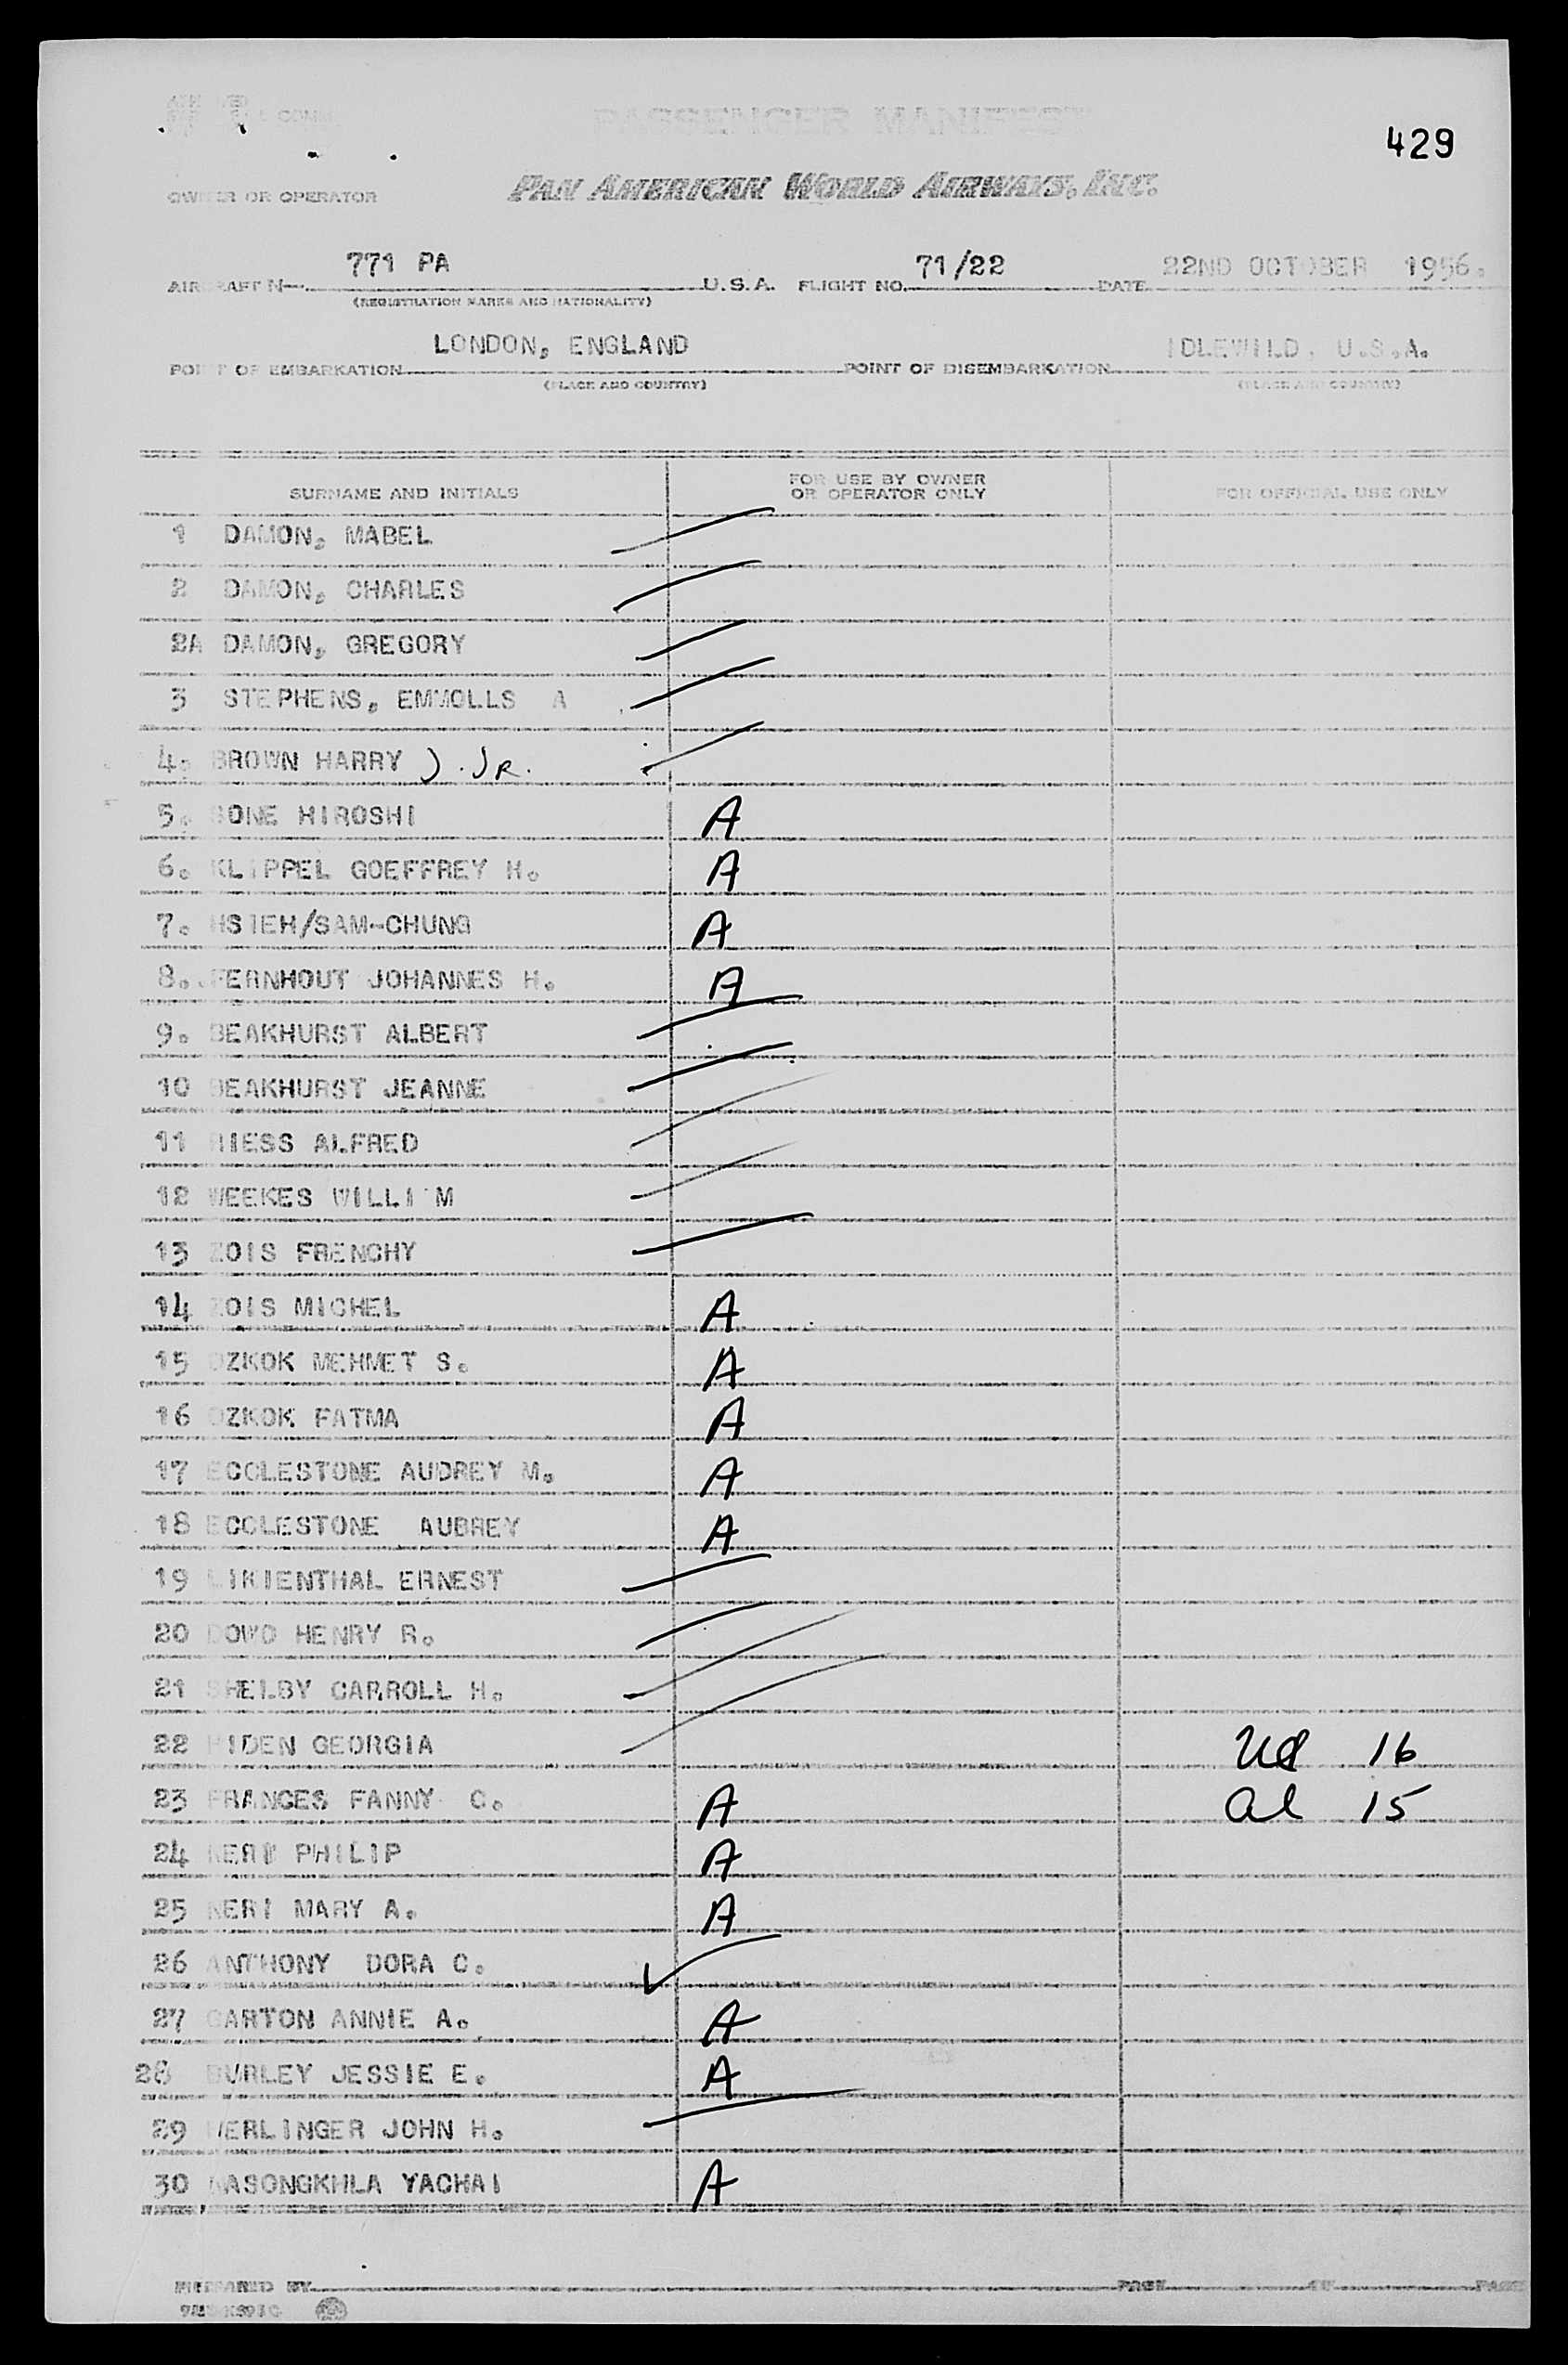 PASSENGER MANIFEST
429
OWNER OR OPERATOR PAN AMERICAN WORLD AIRWAYS, INC.
AIRCRAFT N— 771 PA U.S.A. FLIGHT NO. 71/22 DATE 22ND OCTOBER 1956.
(REGISTRATION MARKS AND NATIONALITY)
POINT OF EMBARKATION LONDON, ENGLAND POINT OF DISEMBARKATION IDLEWILD, U.S.A.
(PLACE AND COUNTRY) (PLACE AND COUNTRY)
SURNAME AND INITIALS FOR USE BY OWNER OR OPERATOR ONLY FOR OFFICIAL USE ONLY
1 DAMON, MABEL
2 DAMON, CHARLES
2A DAMON, GREGORY
3 STEPHENS, EMMOLLS A
4. BROWN HARRY J. JR.
5. SONE HIROSHI A
6. KLIPPEL GOEFFREY H. A
7. HSIEH/SAM-CHUNG A
8. FERNHOUT JOHANNES H. A
9. BEAKHURST ALBERT
10 BEAKHURST JEANNE
11 RIESS ALFRED
12 WEEKES WILLI M
13 ZOIS FRENCHY
14 ZOIS MICHEL A
15 OZKOK MEHMET S. A
16 OZKOK FATMA A
17 ECCLESTONE AUDREY M. A
18 ECCLESTONE AUBREY A
19 LIKIENTHAL ERNEST
20 DOWD HENRY R.
21 SHELBY CARROLL H.
22 HIDEN GEORGIA US 16
23 FRANCES FANNY C. A al 15
24 KERI PHILIP A
25 KERI MARY A. A
26 ANTHONY DORA C.
27 GARTON ANNIE A. A
28 BURLEY JESSIE E. A
29 WERLINGER JOHN H.
30 NASONGKHLA YACHAI A
PREPARED BY PAGE OF PAGE